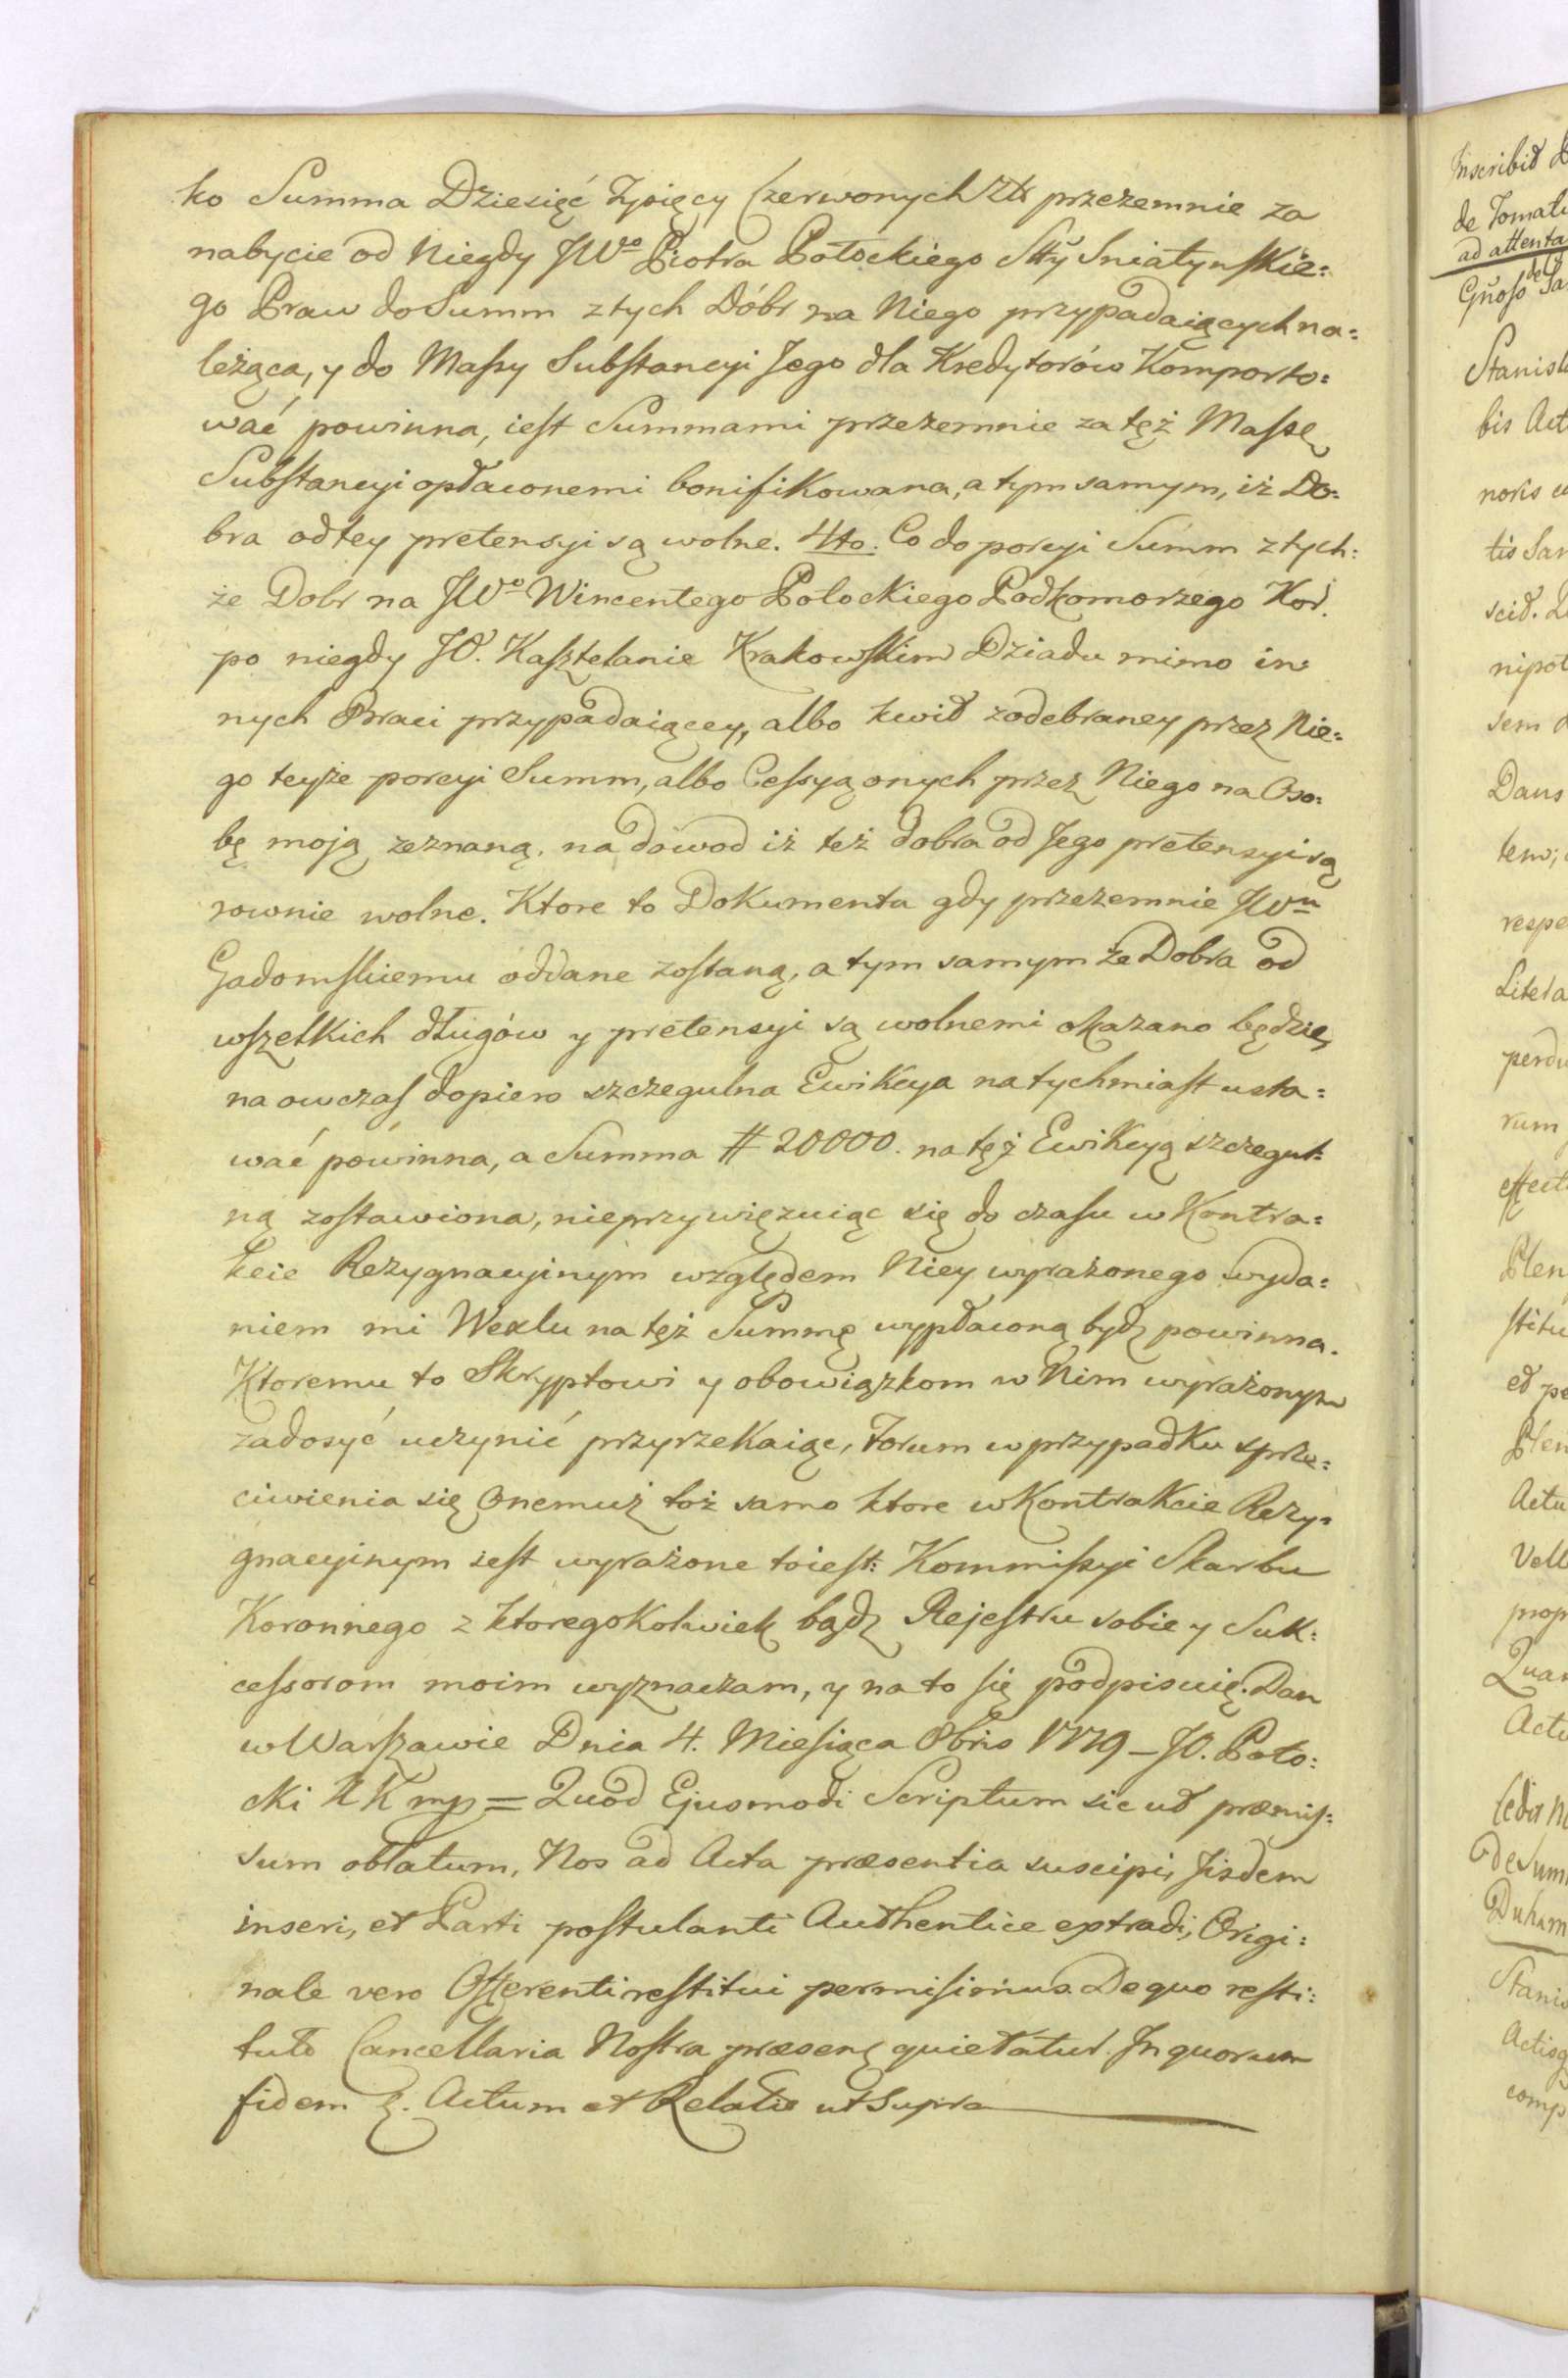 ko Summa Dziesięć Tysięcy Czerwonych Złł przezemnie za
nabycie od Niegdy JWo Piotra Potockiego Stty Sniatynskie:
go Praw do Summ z tych Dóbr na Niego przypadaiących na:
leżąca, y do Massy Substancyi Jego dla Kredytorów Komporto:
wać powinna, iest Summami przezemnie za tęż Massę
Substancyi opłaconemi bonifikowana, a tym samym, iż Do:
bra od tey pretensyi są wolne. 4to. Co do porcyi Summ z tych:
że Dobr na JWo Wincentego Potockiego Podkomorzego Kor.
po niegdy JO. Kasztelanie Krakowskim Dziadu mimo in:
nych Braci przypadaiącey, albo kwit z odebraney przez Nie:
go teyże porcyi Summ, albo Cessyą onych przez Niego na Oso:
bę moją zeznaną. na dowod iż też dobra od Jego pretensyi są
rownie wolne. Ktore to Dokumenta gdy przezemnie JWu
Gadomskiemu oddane zostaną, a tym samym że Dobra od
wszelkich długów y pretensyi są wolnemi okazano będzie,
na owczas dopiero szczegulna Ewikcya natychmiast usta:
wać powinna, a Summa # 20000. na tęż Ewikcyą szczegul:
ną zostawiona, nieprzywięzuiąc się do czasu w Kontra:
kcie Rezygnacyinym względem Niey wyrażonego wyda:
niem mi Wexlu na tęż Summę wypłaconą bydź powinna.
Ktoremu to Skryptowi y obowiązkom w Nim wyrażonym
zadosyć uczynić przyrzekaiąc, Forum w przypadku sprze:
ciwienia się Onemuż toż samo ktore w Kontrakcie Rezy:
gnacyinym iest wyrażone toiest: Kommissyi Skarbu
Koronnego z ktoregokolwiek bądź Rejestru sobie y Suk:
cessorom moim wyznaczam, y na to się podpisuię. Dan
w Warszawie Dnia 4. Miesiąca 8bris 1779 – JO. Poto:
cki KK mp = Quod Ejusmodi Scriptum sic ut præmis:
sum oblatum, Nos ad Acta præsentia suscipi, Jisdem
inseri, et Parti postulanti Authentice extradi, Origi:
nale vero Offerenti restitui permisimus. De quo resti:
tuto Cancellaria Nostra præsens quietatur. In quorum
fidem &. Actum et Relatio ut Supra
Inscribit
de
ad attenta
Gnoso
Stanisl
bis Act
noris
tis San
scit.
nipot
sem
Daus
tem;
respe
Litera
perdu
rum
effectu
Plen
stitu
et pe
Plen
Actu
Vell
prop
Quar
Actu
Cedit
de Sum
Stanis
Actisq
comp